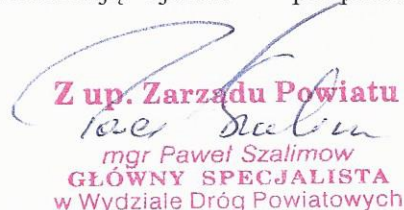 Z up. Zarządu Powiatu
mgr Paweł Szalimow
GŁÓWNY SPECJALISTA
w Wydziale Dróg Powiatowych